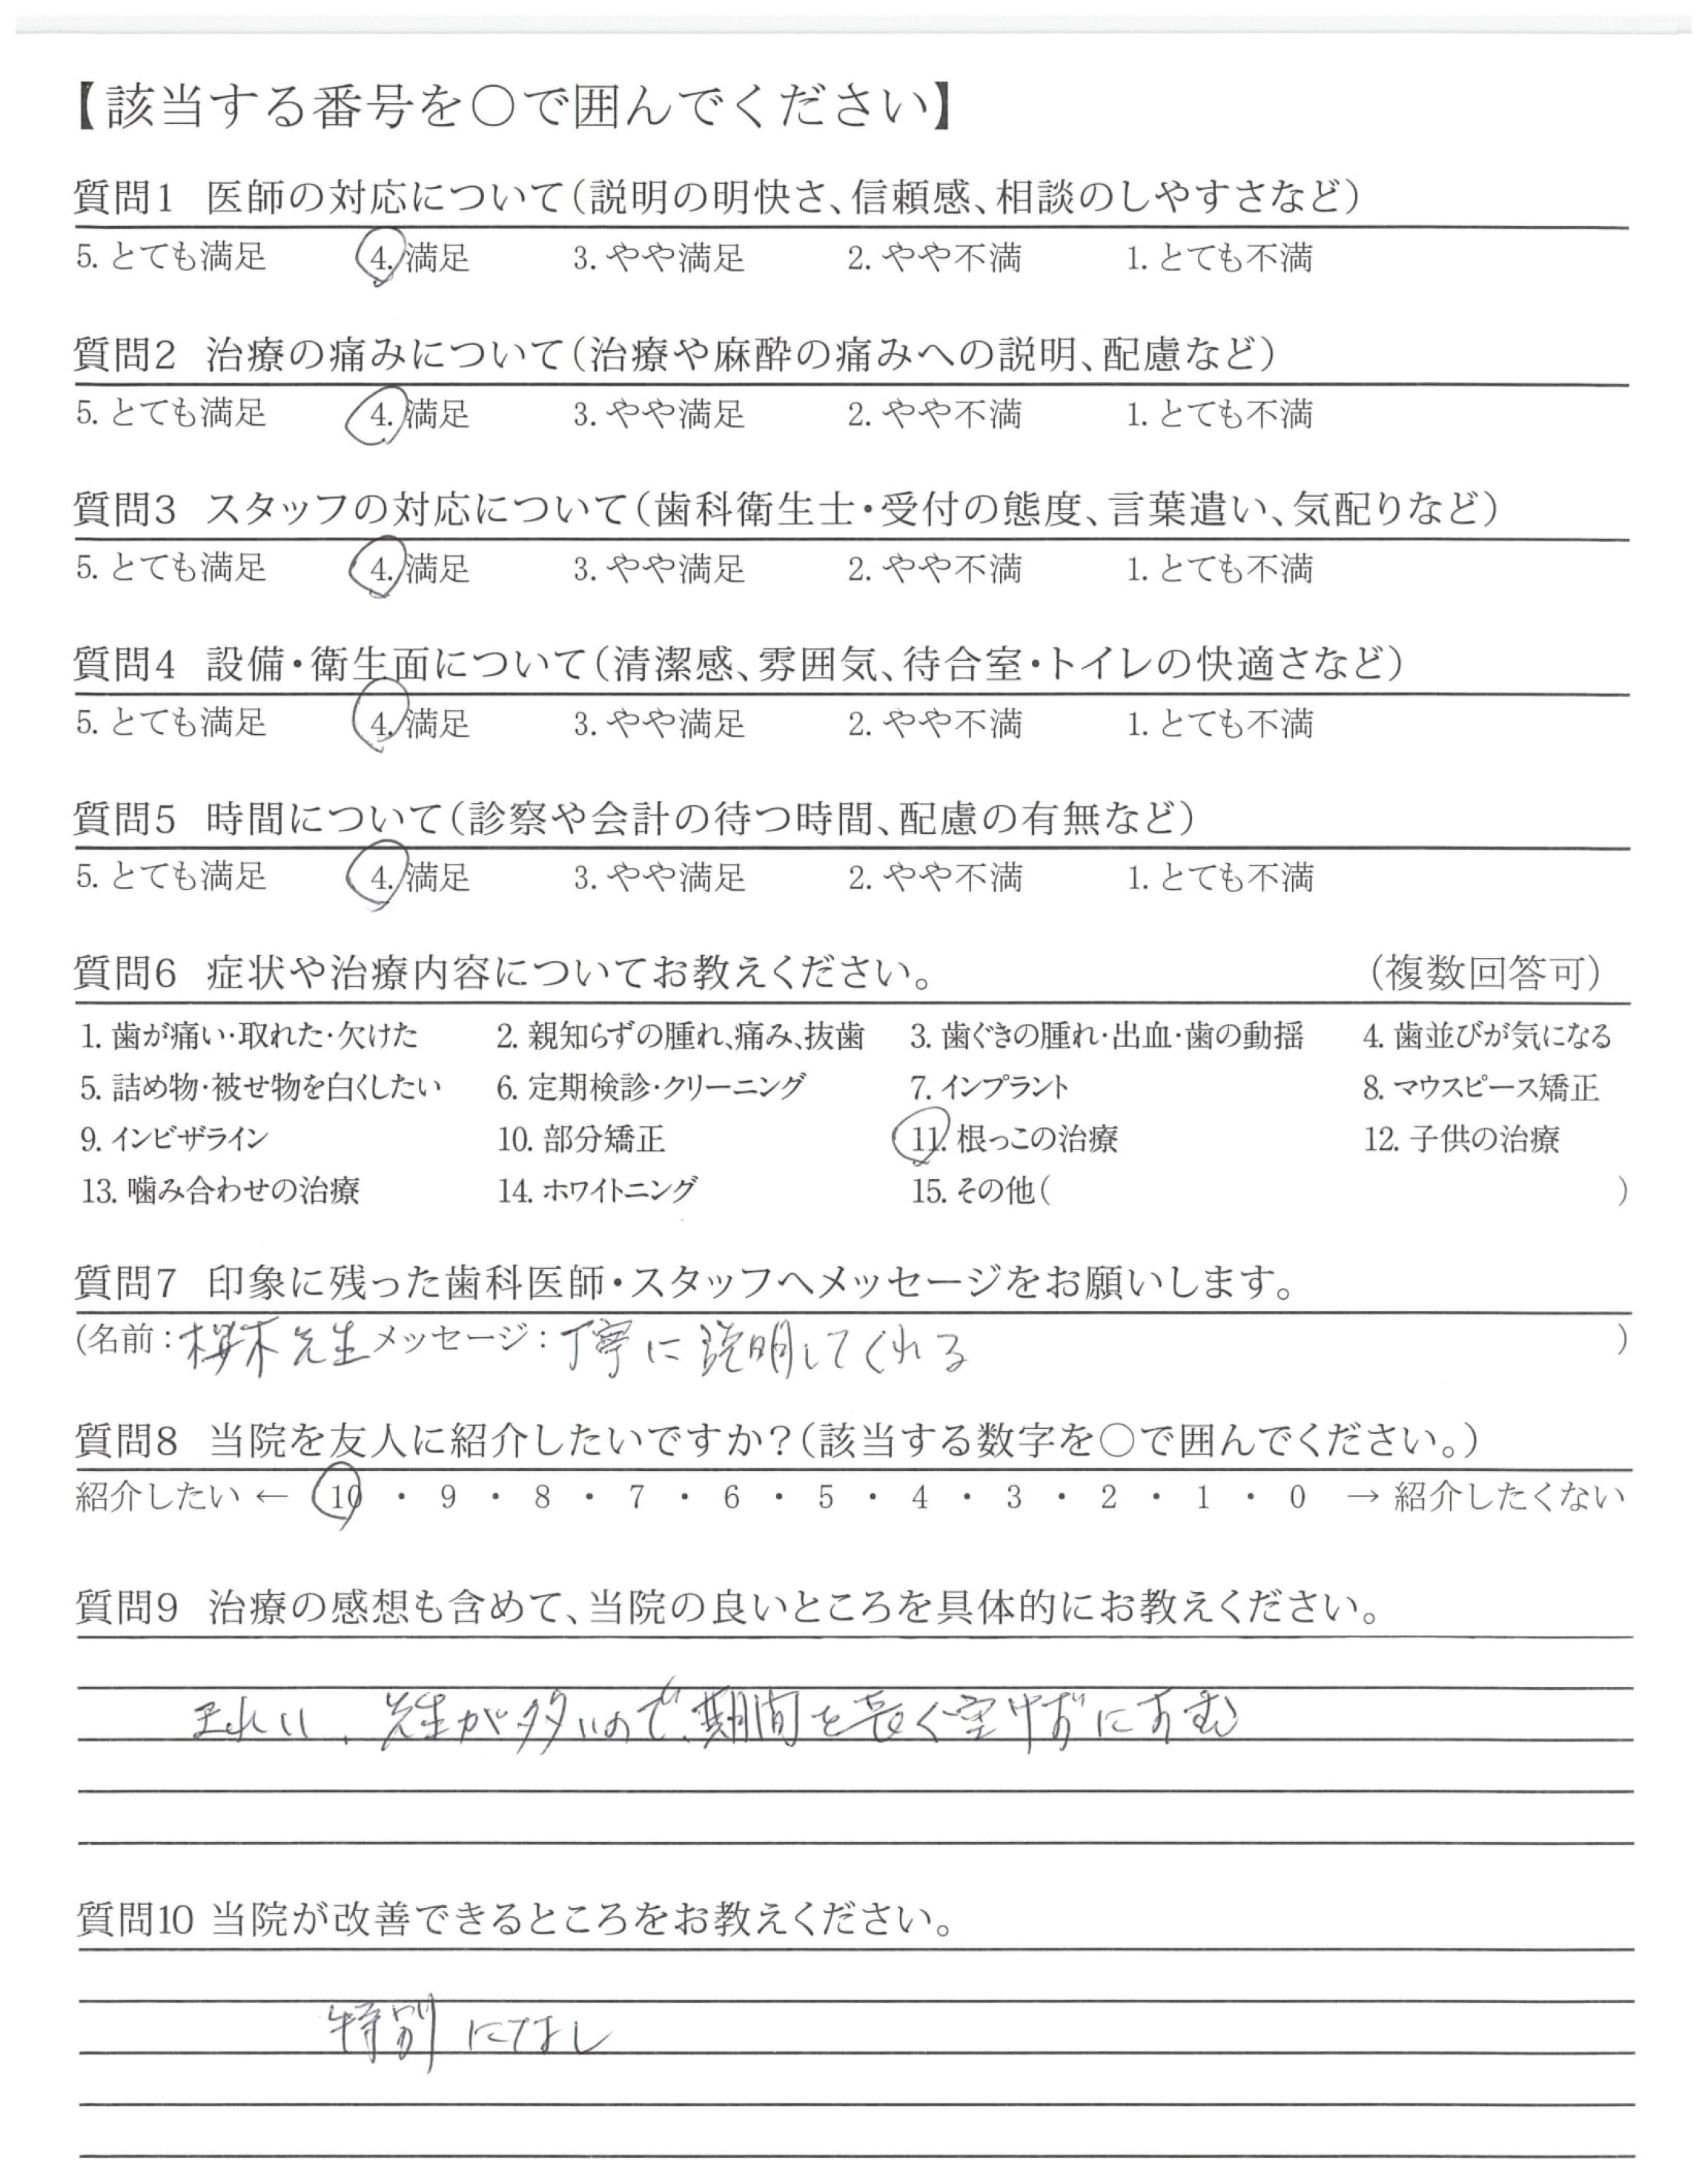 【該当する番号を○で囲んでください】
質問1 医師の対応について(説明の明快さ、信頼感、相談のしやすさなど)
5. とても満足 4. 満足 3. やや満足 2. やや不満 1. とても不満
質問2 治療の痛みについて(治療や麻酔の痛みへの説明、配慮など)
5. とても満足 4. 満足 3. やや満足 2. やや不満 1. とても不満
質問3 スタッフの対応について(歯科衛生士・受付の態度、言葉遣い、気配りなど)
5. とても満足 4. 満足 3. やや満足 2. やや不満 1. とても不満
質問4 設備・衛生面について(清潔感、雰囲気、待合室・トイレの快適さなど)
5. とても満足 4. 満足 3. やや満足 2. やや不満 1. とても不満
質問5 時間について(診察や会計の待つ時間、配慮の有無など)
5. とても満足 4. 満足 3. やや満足 2. やや不満 1. とても不満
質問6 症状や治療内容についてお教えください。 (複数回答可)
1. 歯が痛い・取れた・欠けた 2. 親知らずの腫れ、痛み、抜歯 3. 歯ぐきの腫れ・出血・歯の動揺 4. 歯並びが気になる
5. 詰め物・被せ物を白くしたい 6. 定期検診・クリーニング 7. インプラント 8. マウスピース矯正
9. インビザライン 10. 部分矯正 11. 根っこの治療 12. 子供の治療
13. 噛み合わせの治療 14. ホワイトニング 15. その他( )
質問7 印象に残った歯科医師・スタッフへメッセージをお願いします。
(名前：桜木先生 メッセージ：丁寧に説明してくれる )
質問8 当院を友人に紹介したいですか?(該当する数字を○で囲んでください。)
紹介したい ← 10 ・ 9 ・ 8 ・ 7 ・ 6 ・ 5 ・ 4 ・ 3 ・ 2 ・ 1 ・ 0 → 紹介したくない
質問9 治療の感想も含めて、当院の良いところを具体的にお教えください。
きれい、先生が多いので、期間を長く空けずにすむ
質問10 当院が改善できるところをお教えください。
特別になし